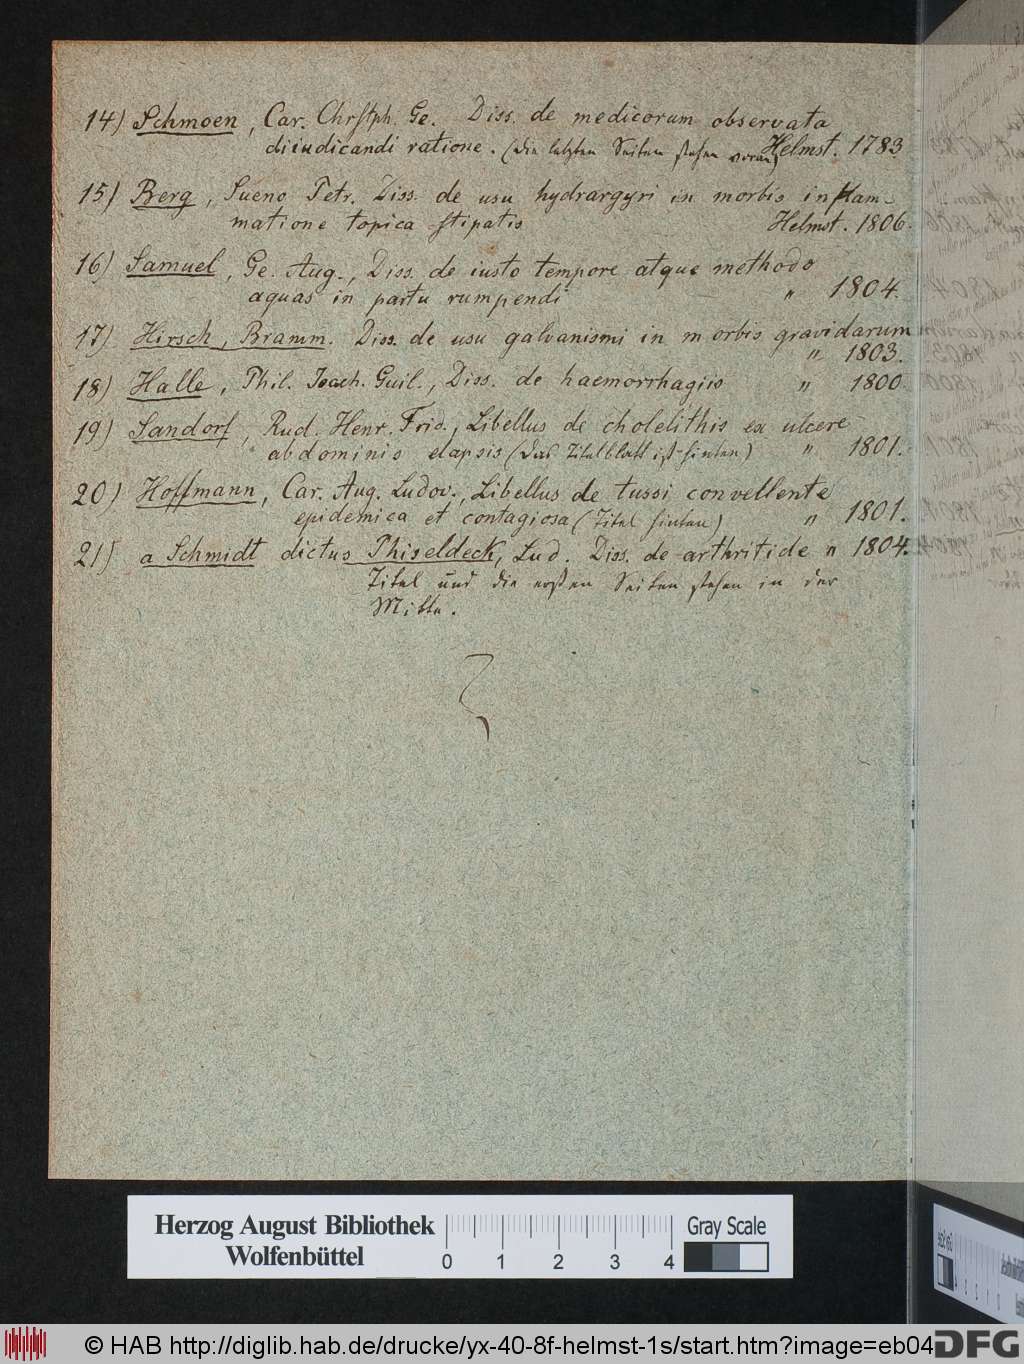 14) Schmoen, Car. Chrstph. Ge. Diss. de medicorum observata
diiudicandi ratione. (die letzten Seiten stehen voran) Helmst. 1783
15) Berg, Sueno Petr. Diss. de usu hydrargyri in morbis inflam-
matione topica stipatis Helmst. 1806.
16) Samuel, Ge. Aug., Diss. de iusto tempore atque methodo
aquas in partu rumpendi " 1804.
17) Hirsch, Bramm. Diss. de usu galvanismi in morbis gravidarum
" 1803.
18) Halle, Phil. Joach. Guil., Diss. de haemorrhagiis " 1800.
19) Sandorf, Rud. Henr. Frid., Libellus de cholelithis ex ulcere
abdominis elapsis (das Titelblatt ist hinten) " 1801.
20) Hoffmann, Car. Aug. Ludov., Libellus de tussi convellente
epidemica et contagiosa (Titel hinten) " 1801.
21) a Schmidt dictus Phiseldeck, Lud. Diss. de arthritide " 1804.
Titel und die ersten Seiten stehen in der
Mitte.
Herzog August Bibliothek
Wolfenbüttel
0 1 2 3 4
Gray Scale
© HAB http://diglib.hab.de/drucke/yx-40-8f-helmst-1s/start.htm?image=eb04
DFG